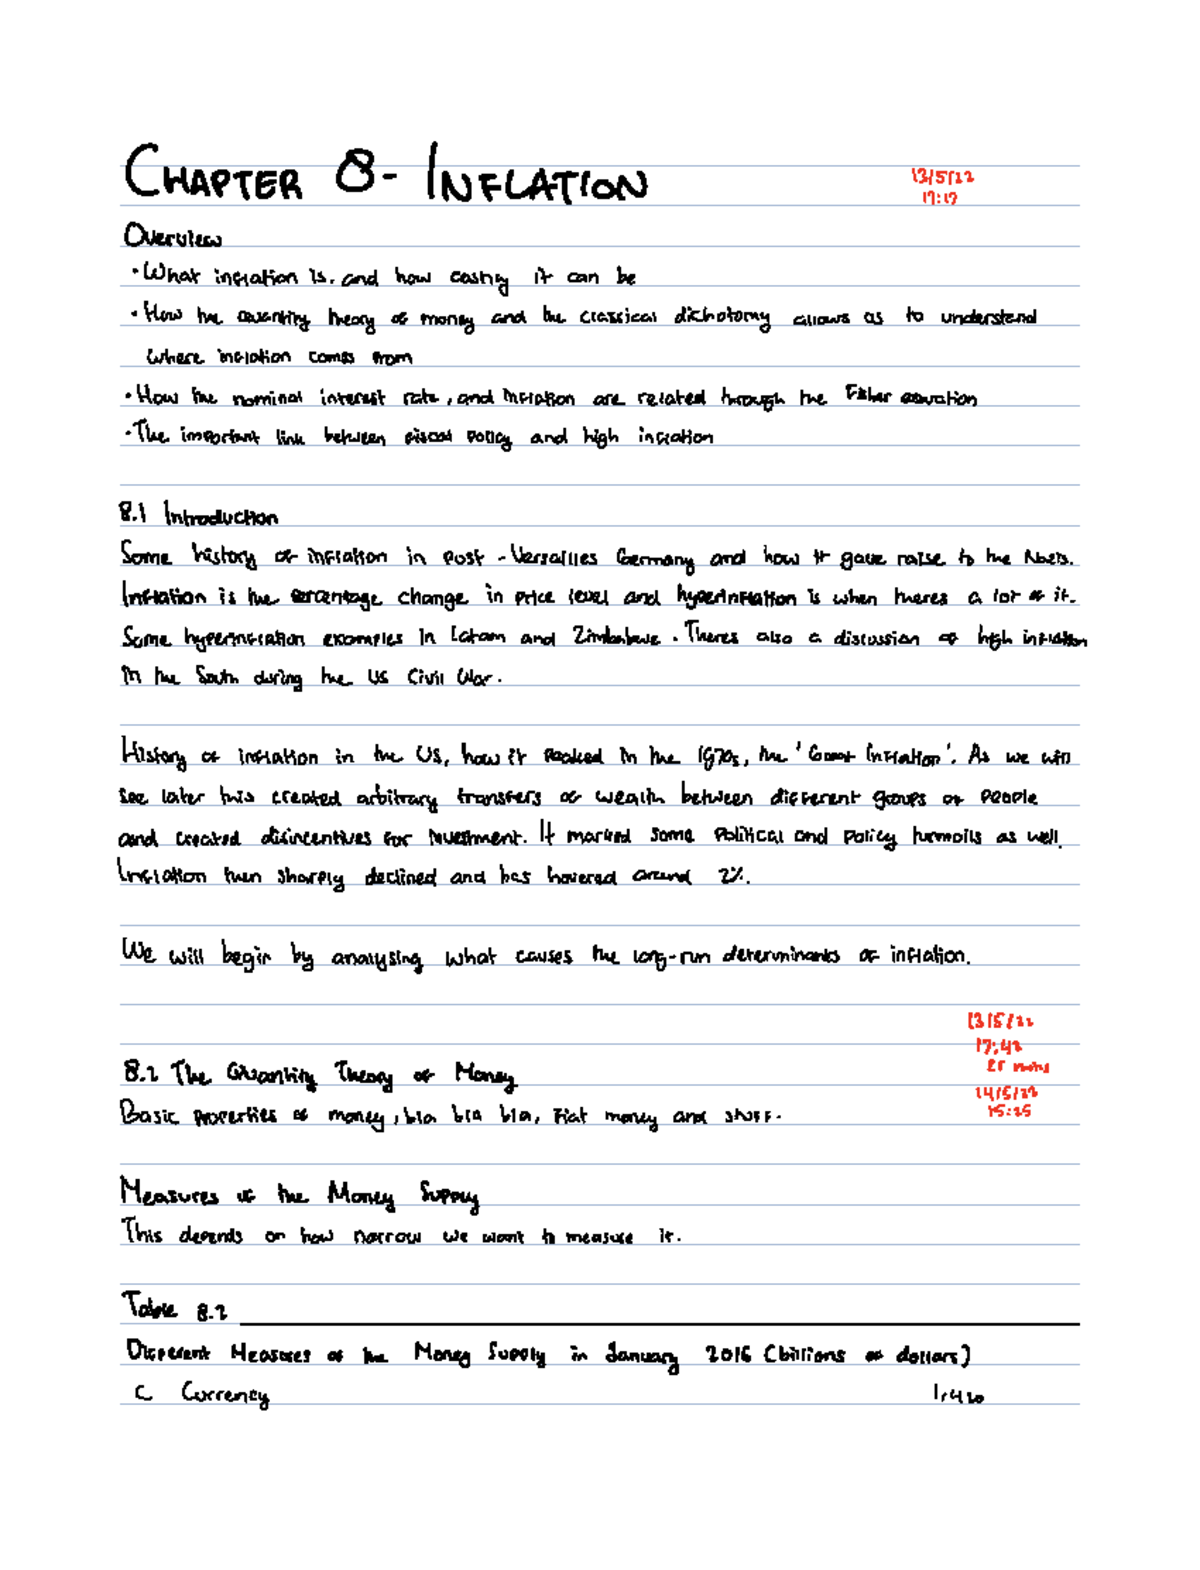 CHAPTER 8- INFLATION
13/5/22
17:17
Overview
•What inflation is, and how costly it can be
•How the quantity theory of money and the classical dichotomy allows us to understand
where inflation comes from
•How the nominal interest rate, and inflation are related through the Fisher equation
•The important link between fiscal policy and high inflation
8.1 Introduction
Some history of inflation in post-Versailles Germany and how it gave raise to the Nazis.
Inflation is the percentage change in price level and hyperinflation is when theres a lot of it.
Some hyperinflation examples in Latam and Zimbabwe. Theres also a discussion of high inflation
in the South during the US Civil War.
History of inflation in the US, how it peaked in the 1970s, the 'Great Inflation'. As we will
see later this created arbitrary transfers of wealth between different groups of people
and created disincentives for investment. It marked some political and policy turmoils as well.
Inflation then sharply declined and has hovered around 2%.
We will begin by analysing what causes the long-run determinants of inflation.
13/5/22
17:42
25 mins
8.2 The Quantity Theory of Money
14/5/22
15:25
Basic properties of money, bla bla bla, fiat money and stuff.
Measures of the Money Supply
This depends on how narrow we want to measure it.
Table 8.2
Different Measures of the Money Supply in January 2016 (billions of dollars)
C Currency 1,420